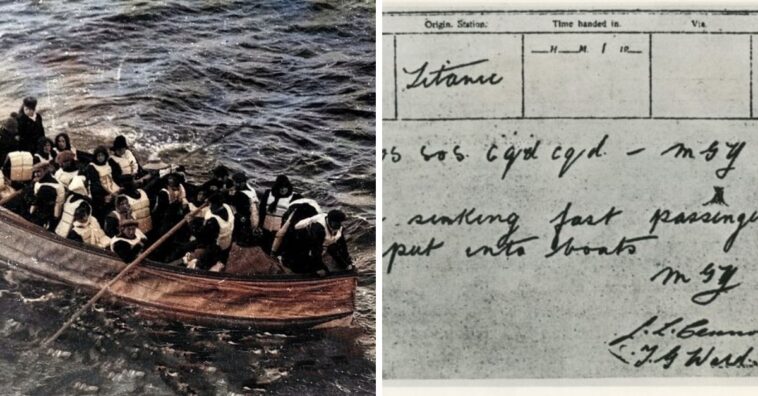 Origin. Station. Time handed in. Via.
Titanic H. M. 19
os sos cqd cqd - MGY
sinking fast passenge
put into boats
MGY
T G Ward